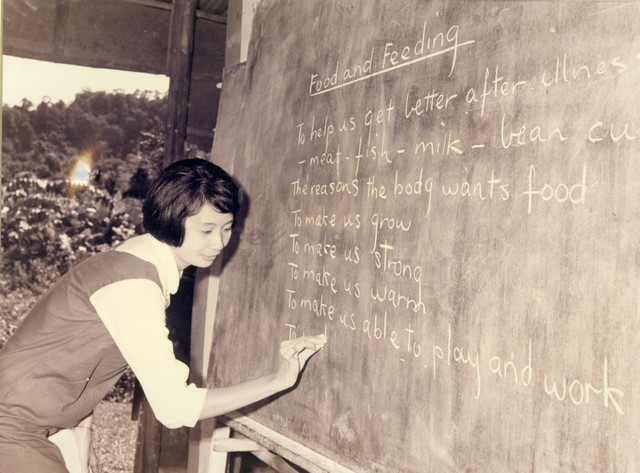 Food and Feeding
To help us get better after illness
- meat - fish - milk - bean cu
The reasons the body wants food
To make us grow
To make us strong
To make us warm
To make us able to play and work
To